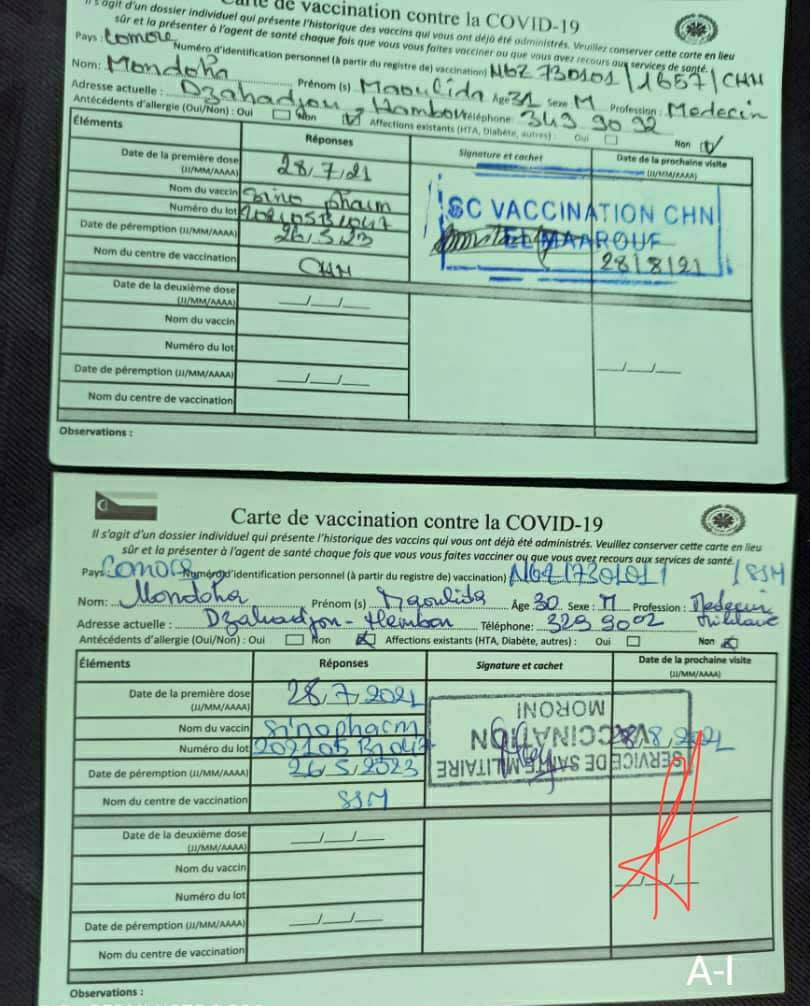 Carte de vaccination contre la COVID-19
Il s'agit d'un dossier individuel qui présente l'historique des vaccins qui vous ont déjà été administrés. Veuillez conserver cette carte en lieu
sûr et la présenter à l'agent de santé chaque fois que vous vous faites vacciner ou que vous avez recours aux services de santé.
Pays : Comore Numéro d'identification personnel (à partir du registre de) vaccination) N62 730101/1657/CHN
Nom: Mondoha Prénom (s) Maoulida Age 31 Sexe M Profession : Medecin
Adresse actuelle : Dzahadjou - Hambou Téléphone: 349 90 92
Antécédents d'allergie (Oui/Non) : Oui Non Affections existants (HTA, Diabète, autres) : Oui Non
Éléments Réponses Signature et cachet Date de la prochaine visite
(JJ/MM/AAAA)
Date de la première dose 28/7/21
(JJ/MM/AAAA)
Nom du vaccin Sino pharm
Numéro du lot
SC VACCINATION CHN
EL MAAROUF
Date de péremption (JJ/MM/AAAA) 26/5/23
28/8/21
Nom du centre de vaccination CHN
Date de la deuxième dose __/__/__
(JJ/MM/AAAA)
Nom du vaccin
Numéro du lot
Date de péremption (JJ/MM/AAAA) __/__/__ __/__/__
Nom du centre de vaccination
Observations :
Carte de vaccination contre la COVID-19
Il s'agit d'un dossier individuel qui présente l'historique des vaccins qui vous ont déjà été administrés. Veuillez conserver cette carte en lieu
sûr et la présenter à l'agent de santé chaque fois que vous vous faites vacciner ou que vous avez recours aux services de santé.
Pays: Comore Numéro d'identification personnel (à partir du registre de) vaccination) N62/730101/ /SSM
Nom: Mondoha Prénom (s) Maoulida Âge 30 Sexe : M Profession : Medecin
Militaire
Adresse actuelle : Dzahadjou - Hambou Téléphone: 329 90 02
Antécédents d'allergie (Oui/Non) : Oui Non Affections existants (HTA, Diabète, autres) : Oui Non
Éléments Réponses Signature et cachet Date de la prochaine visite
(JJ/MM/AAAA)
Date de la première dose 28/7/2021
(JJ/MM/AAAA)
Nom du vaccin Sinopharm
Numéro du lot
SERVICE DE SANTE MILITAIRE
VACCINATION
MORONI
28/8/2021
Date de péremption (JJ/MM/AAAA) 26/5/2023
Nom du centre de vaccination SSM
Date de la deuxième dose __/__/__
(JJ/MM/AAAA)
Nom du vaccin
Numéro du lot
__/__/__
Date de péremption (JJ/MM/AAAA) __/__/__
Nom du centre de vaccination
Observations :
A-I